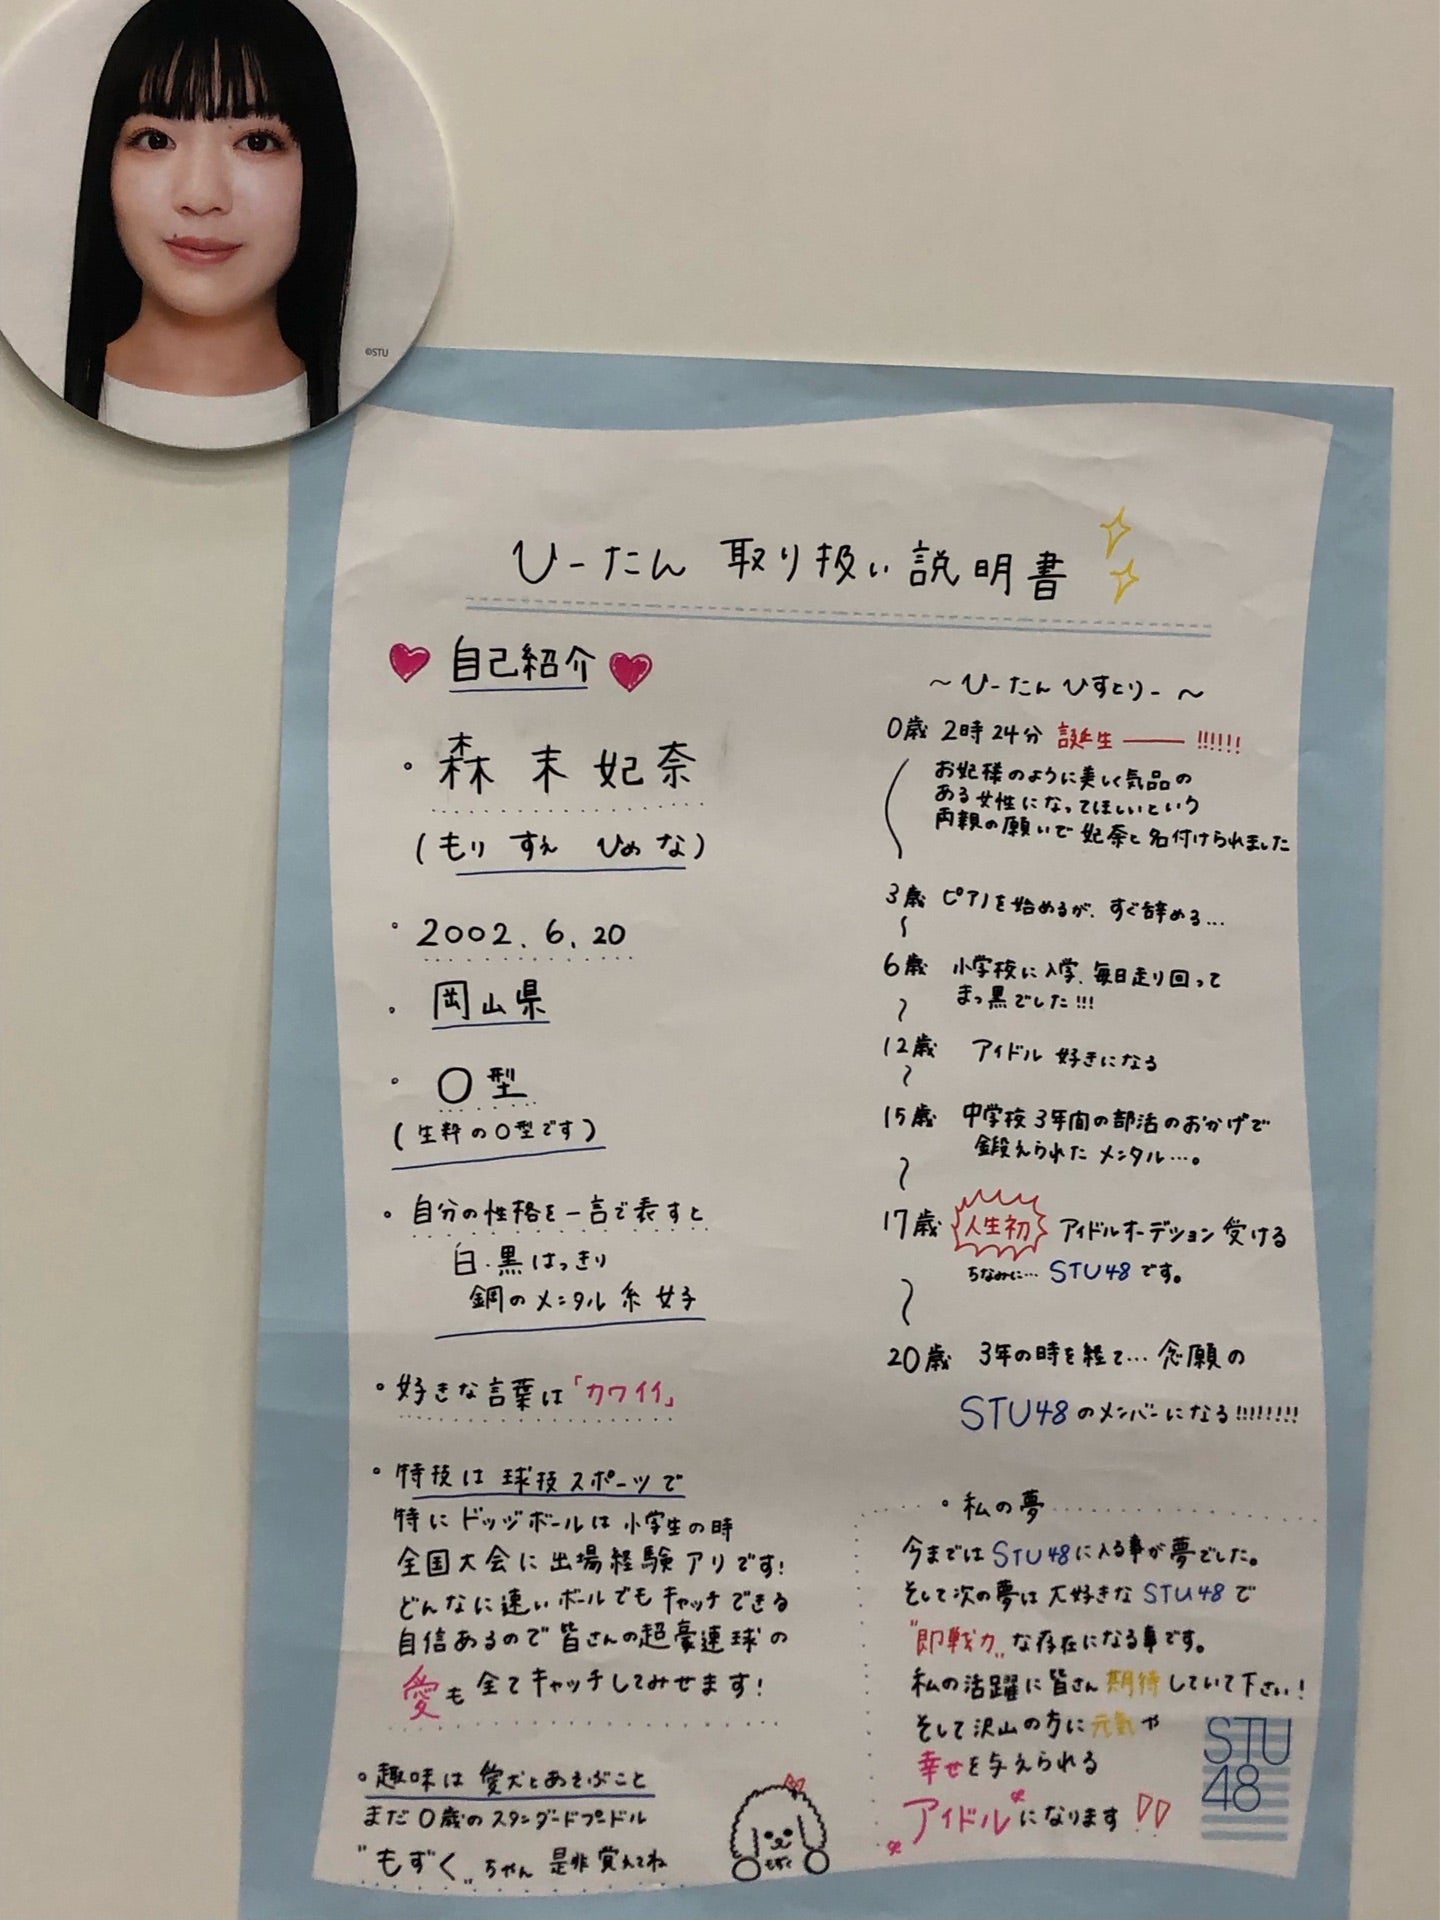 ©STU
ひーたん 取り扱い説明書
自己紹介
。森末妃奈
(もり すえ ひめな)
。2002.6.20
。岡山県
。O型
(生粋のO型です)
。自分の性格を一言で表すと
白・黒はっきり
鋼のメンタル系女子
。好きな言葉は「カワイイ」
。特技は球技スポーツで
特にドッジボールは小学生の時
全国大会に出場経験アリです!
どんなに速いボールでもキャッチできる
自信あるので皆さんの超豪速球の
愛も全てキャッチしてみせます!
。趣味は愛犬とあそぶこと
まだ0歳のスタンダードプードル
"もずく"ちゃん是非覚えてね
もずく
〜ひーたん ひすとりー〜
0歳 2時24分 誕生――!!!!!!
お妃様のように美しく気品の
ある女性になってほしいという
両親の願いで妃奈と名付けられました
3歳 ピアノを始めるが、すぐ辞める...
6歳 小学校に入学、毎日走り回って
まっ黒でした!!!
12歳 アイドル好きになる
15歳 中学校3年間の部活のおかげで
鍛えられたメンタル...。
17歳 人生初 アイドルオーデション受ける
ちなみに... STU48です。
20歳 3年の時を経て... 念願の
STU48のメンバーになる!!!!!!!!
。私の夢
今まではSTU48に入る事が夢でした。
そして次の夢は大好きなSTU48で
"即戦力"な存在になる事です。
私の活躍に皆さん期待していて下さい!
そして沢山の方に元気や
幸せを与えられる
アイドルになります!!
STU
48